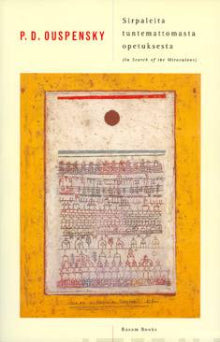 P. D. OUSPENSKY
Sirpaleita
tuntemattomasta
opetuksesta
(In Search of the Miraculous)
Basam Books